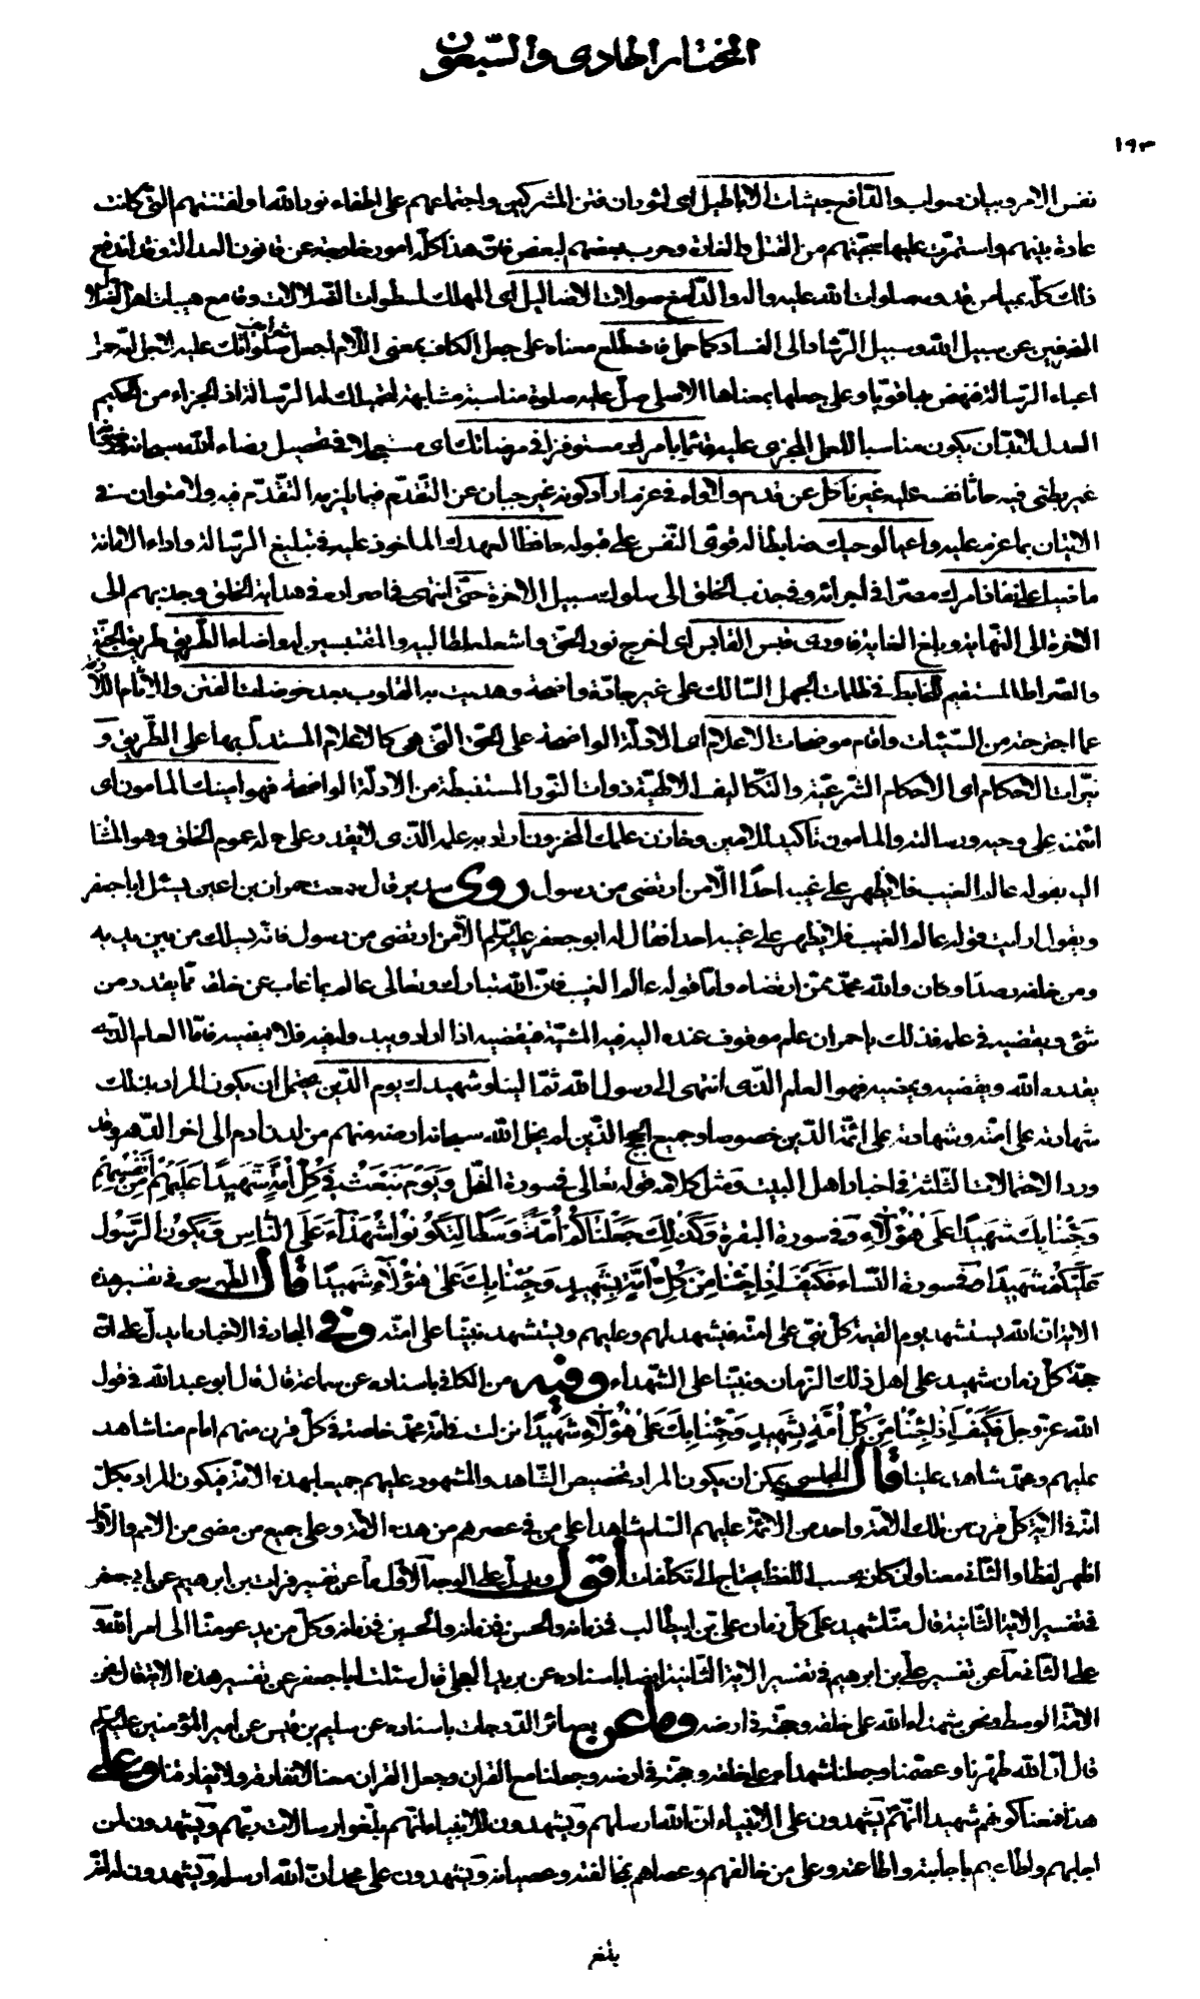 المختار الحادى والسّبعون
١٩٣
نفس الامر وبيان صواب والدّافع جيشات الاباطيل اى لثوران فتن المشركين واجتماعهم على اطفاء نور الله او لفتنتهم التى كانت
عادة بينهم واستمرّت عليها سجيّتهم من القتل والغارة وحرب بعضهم لبعض فانّ هذا كلّه امور خارجة عن قانون العدل وقد اندفع
ذلك كلّه بميامن قدومه صلوات الله عليه واله والدّامغ صولات الاضاليل اى المهلك لسطوات الضلالات وقامع هيبات اهل الضّلال
المنحرفين عن سبيل الله وسبيل الرّشاد الى الفساد كما حمل فاضطلع معناه على جعل الكاف بمعنى اللّام اجعل شرايف صلواتك عليه لاجل انّه حمل
اعباء الرّسالة فنهض بها قويّا وعلى جعلها بمعناها الاصلى صلّ عليه صلوة مناسبة مشابهة لتحميلك له الرّسالة اذ الجزاء من الحكيم
العدل لابدّ ان يكون مناسبا للعمل المجزى عليه قائما بامرك مستوفزا فى مرضاتك اى مستعجلا فى تحصيل رضاء الله سبحانه
غير بطئ فيه حاثّا نفسه عليه غير ناكل عن قدم ولا واه فى عزم اراد كونه غير جبان عن التّقدّم فيما يلزمه التّقدّم فيه ولا متوان فى
الاتيان بما عزم عليه واعيا لوحيك ضابطا له قوى النّفس على قبوله حافظا لعهدك الماخوذ عليه فى تبليغ الرّسالة واداء الامانة
ماضيا على نفاذ امرك مصرّا فى اجرائه وفى جذب الخلق الى سلوك سبيل الاخرة حتّى انتهى فى اصراره فى هداية الخلق وجذبهم الى
الاخرة الى النّهاية وبلغ الغاية فاورى قبس القابس اى اخرج نور الحق واشعله لطالبيه والمقتبسين له واضاء الطّريق طريق الجنّة
والصّراط المستقيم للخابط فى ظلمات الجهل السّالك على غير جادّة واضحة وهديت به القلوب بعد خوضات الفتن والاثام
عمّا اجترحته من السّيئات واقام موضحات الاعلام اى الادلّة الواضحة على الحق الّتى هى كالاعلام المستدلّ بها على الطّريق و
نيّرات الاحكام اى الاحكام الشّرعيّة والتّكاليف الالهيّة ذوات النّور المستنبطة من الادلّة الواضحة فهو امينك المامون اى
ائتمنه على وحيه ورسالته والمامون تاكيد للامين وخازن علمك المخزون اراد به علمه الذى لا يقدر على حمله عموم الخلق وهو المشار
اليه بقوله عالم الغيب فلا يظهر على غيبه احدًا الّا من ارتضى من رسول روى سدير قال سمعت حمران بن اعين يسئل ابا جعفر
ويقول ارايت قوله عالم الغيب فلا يظهر على غيبه احدا فقال له ابو جعفر عليه السّلم الّا من ارتضى من رسول فانّه يسلك من بين يديه
ومن خلفه رصدًا وكان والله محمّد ممّن ارتضاه وامّا قوله عالم الغيب فانّ الله تبارك وتعالى عالم بما غاب عن خلقه ممّا يقدر من
شئ ويقضيه فى علمه فذلك يا حمران علم موقوف عنده اليه فيه المشيّة فيقضيه اذا اراد ويبدو له فيه فلا يمضيه فامّا العلم الّذى
يقدره الله ويقضيه ويمضيه فهو العلم الذى انتهى الى رسول الله ثمّ الينا وشهيدك يوم الدّين يحتمل ان يكون المراد بذلك
شهادته على امّته وشهادته على ائمّة الدّين خصوصا وجميع الحجج الذين لم يخل الله سبحانه ارضه منهم من لدن ادم الى اخر الدّهر وقد
ورد الاحتمالات الثّلثة فى اخبار اهل البيت ومثل كلامه قوله تعالى فى سورة النّحل وَيَوْمَ نَبْعَثُ فى كُلِّ اُمَّةٍ شَهيدًا عَلَيْهِمْ مِنْ اَنْفُسِهِمْ
وَجِئْنا بِكَ شَهيدًا عَلى هؤُلآءِ وفى سورة البقرة وَكَذلِكَ جَعَلْناكُمْ اُمَّةً وَسَطًا لِتَكُونُوا شُهَدآءَ عَلَى النّاسِ وَيَكُونَ الرَّسُولُ
عَلَيْكُمْ شَهيدًا وفى سورة النّساء فَكَيْفَ اِذا جِئْنا مِنْ كُلِّ اُمَّةٍ بِشَهيدٍ وَجِئْنا بِكَ عَلى هؤُلآءِ شَهيدًا قال الطّبرسى فى تفسير هذه
الاية انّ الله يستشهد يوم القيمة كلّ نبىّ على امّته فيشهد لهم وعليهم ويستشهد نبيّنا على امّته وفى البحار فى الاخبار ما يدلّ على انّ
حجّة كلّ زمان شهيد على اهل ذلك الزمان ونبيّنا على الشّهداء وفيه من الكافى باسناده عن سماعة قال قال ابو عبد الله فى قول
الله عزّ وجل فَكَيْفَ اِذا جِئْنا مِنْ كُلِّ اُمَّةٍ بِشَهيدٍ وَجِئْنا بِكَ عَلى هؤُلآءِ شَهيدًا نزلت فى امّة محمّد خاصة فى كلّ قرن منهم امام منا شاهد
عليهم ومحمّد شاهد علينا قال المجلسى يمكن ان يكون المراد تخصيص الشّاهد والمشهود عليهم جميعا بهذه الامّة فيكون المراد بكلّ
امّة فى الاية كلّ قرن من تلك الامّة واحد من الائمّة عليهم السّلم شاهدا على من فى عصرهم من هذه الامّة وعلى جميع من مضى من الامم والاوّل
اظهر لفظا والثّانى معنا وان كان بحسب اللّفظ يحتاج الى تكلّفات اقول ويدلّ على الوجه الاوّل ما عن تفسير فرات بن ابرهيم عن ابى جعفر
فى تفسير الاية الثّانية قال منّا شهيد على كلّ زمان علىّ بن ابيطالب فى زمانه والحسن فى زمانه والحسين فى زمانه وكلّ من يدعو منّا الى امر الله و
على الثّانى ما عن تفسير علىّ بن ابرهيم فى تفسير الاية الثّانية ايضا باسناده عن بريد العجلى قال سئلت ابا جعفر عن تفسير هذه الاية فقال نحن
الامّة الوسط ونحن شهداء الله على خلقه وحجّته فى ارضه وما عن بصائر الدّرجات باسناده عن سليم بن قيس عن امير المؤمنين عليه السّلم
قال انّ الله طهّرنا وعصمنا وجعلنا شهداء على خلقه وحجّته فى ارضه وجعلنا مع القران وجعل القران معنا لا نفارقه ولا يفارقنا وعلى
هذا فمعنا كونهم شهيدا انّهم يشهدون على الانبياء انّ الله ارسلهم ويشهدون للانبياء انّهم بلّغوا رسالات ربّهم ويشهدون لمن
اجابهم واطاعهم باجابته واطاعته وعلى من خالفهم وعصاهم بمخالفته وعصيانه ويشهدون على محمد انّ الله ارسله ويشهدون له انّه
بلّغ